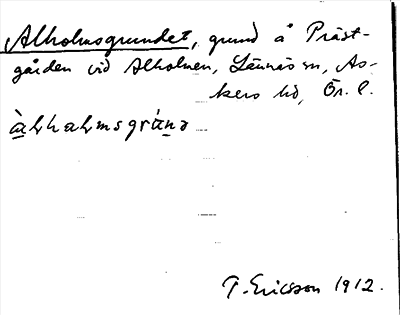 Alholmsgrundet, grund å Präst-
gården vid Alholmen, Lännäs sn, As-
kers hd, Ör. l.
àlhalmsgrúnə
T. Ericsson 1912.